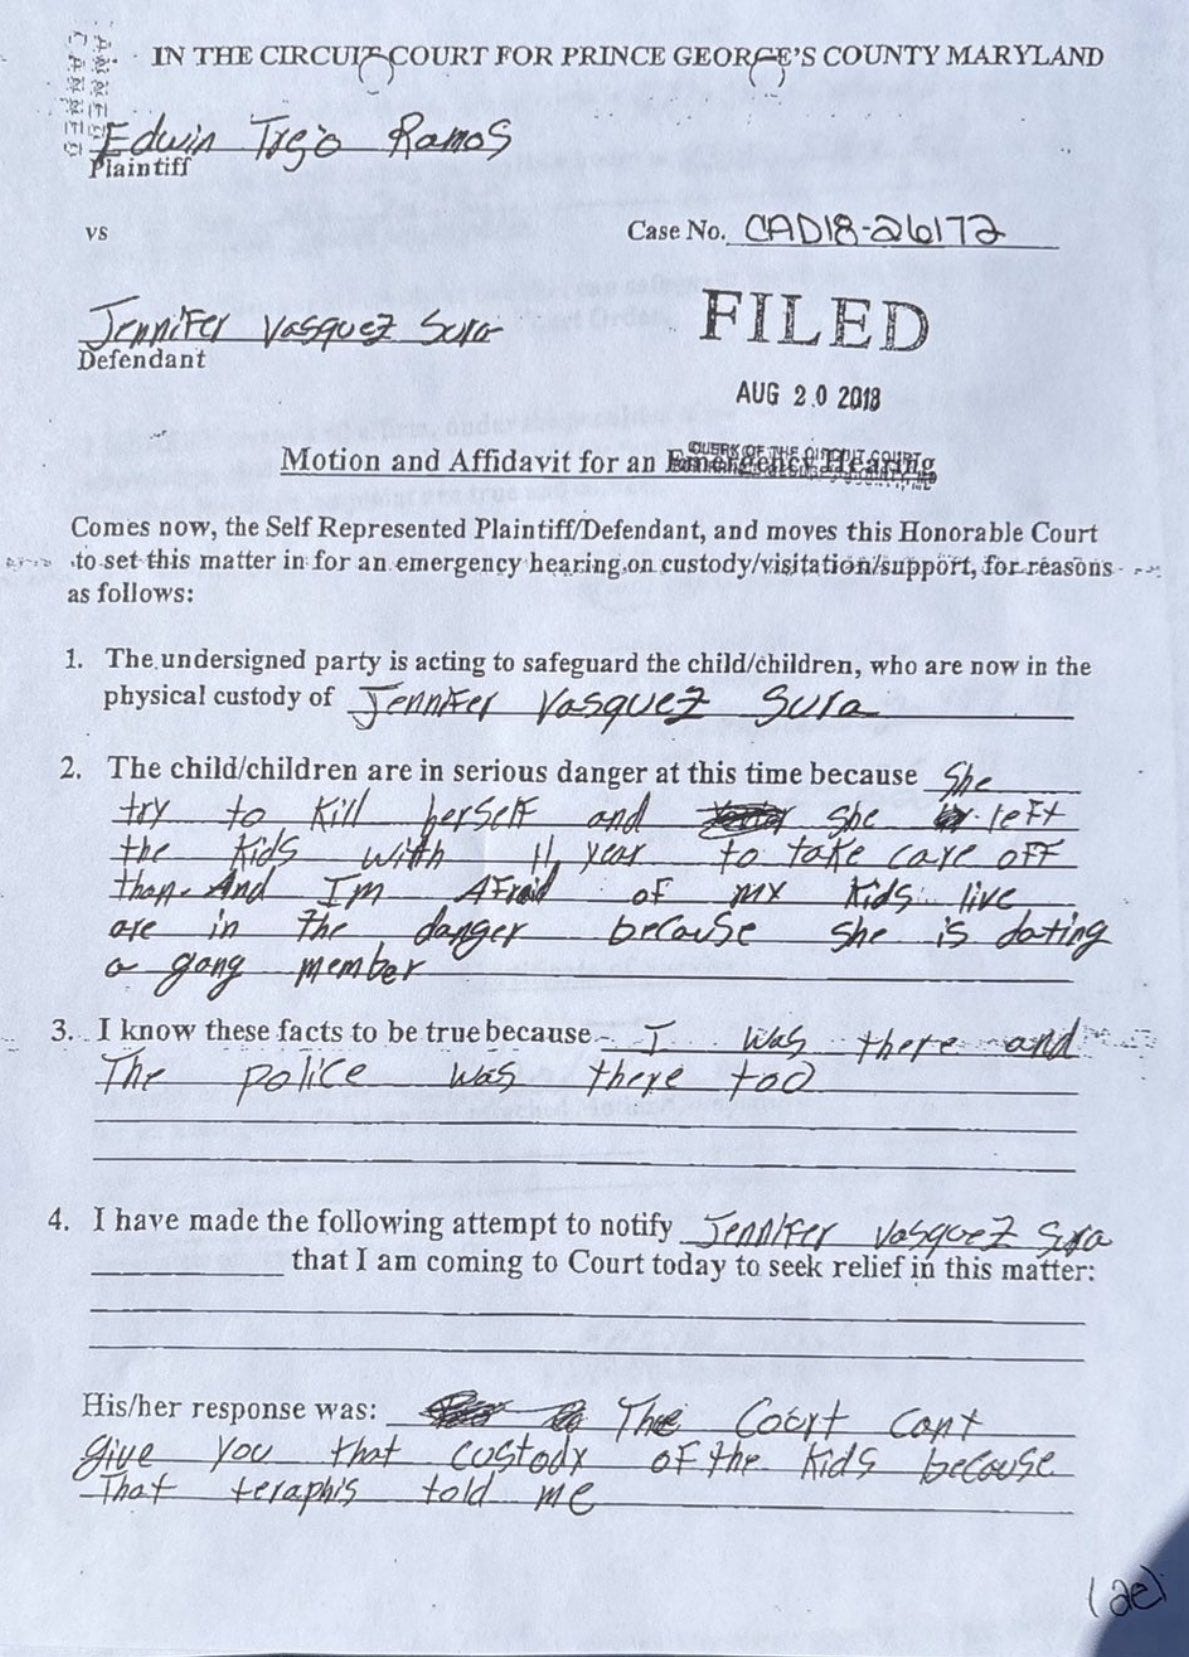 SCANNED
IN THE CIRCUIT COURT FOR PRINCE GEORGE'S COUNTY MARYLAND
Edwin Trejo Ramos
Plaintiff
vs
Case No. CAD18-26172
Jennifer Vasquez Sura
Defendant
FILED
AUG 20 2018
CLERK OF THE CIRCUIT COURT
Motion and Affidavit for an Emergency Hearing
Comes now, the Self Represented Plaintiff/Defendant, and moves this Honorable Court
to set this matter in for an emergency hearing on custody/visitation/support, for reasons
as follows:
1. The undersigned party is acting to safeguard the child/children, who are now in the
physical custody of Jennifer Vasquez Sura
2. The child/children are in serious danger at this time because She
try to Kill herself and she left
the Kids with 11, year to take care off
And Im Afraid of my Kids live
are in the danger because she is dating
a gang member
3. I know these facts to be true because I was there and
The police was there too
4. I have made the following attempt to notify Jennifer Vasquez Sura
that I am coming to Court today to seek relief in this matter:
His/her response was: The Court cant
give you that custody of the Kids because
That teraphis told me